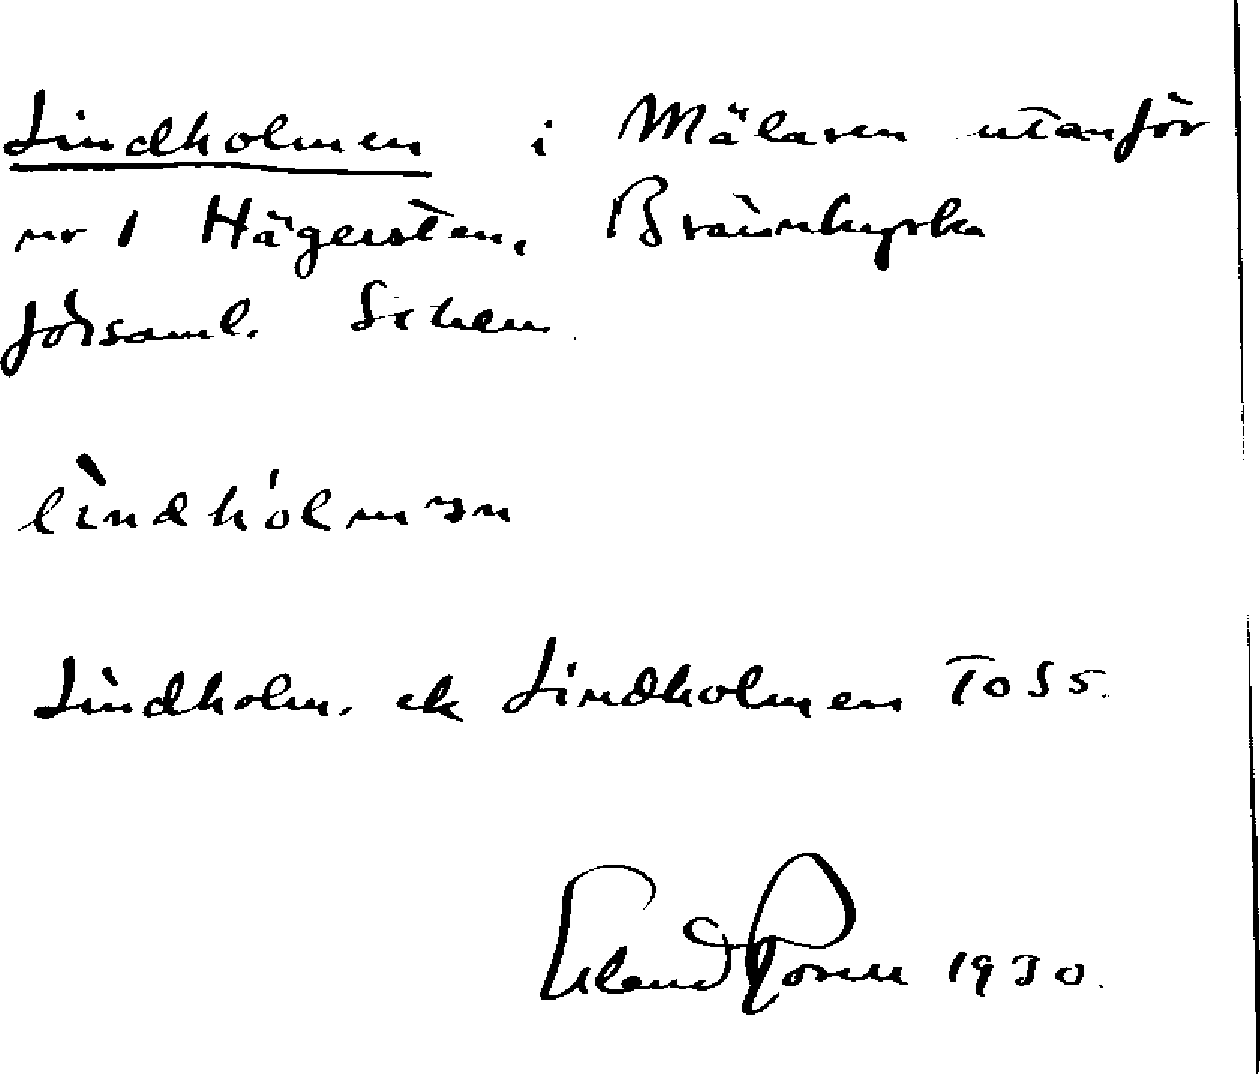 Lindholmen i Mälaren utanför
nr 1 Hägersten, Brännkyrka
församl. Sthlm.
lìndhòlmen
Lindholm. ek Lindholmen To S5.
Erland Rosell 1930.